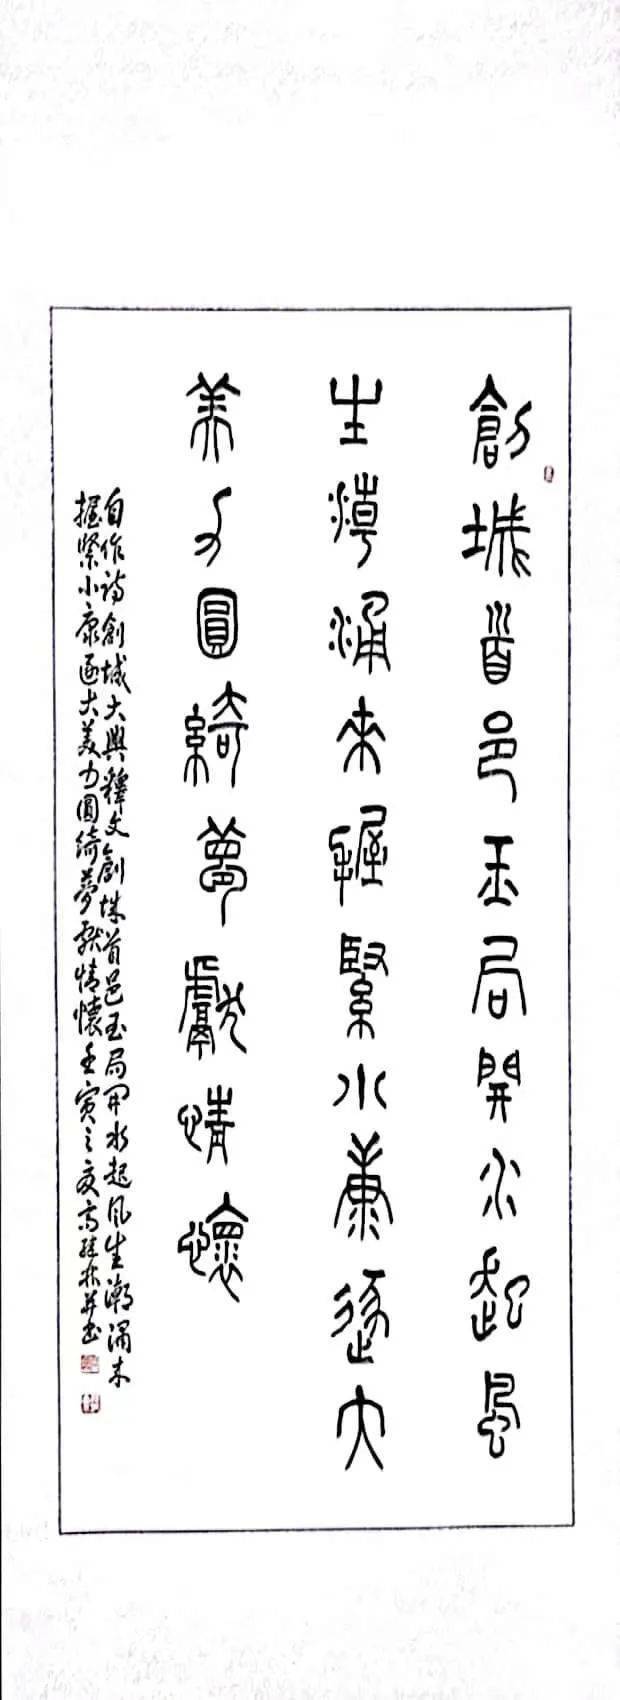 創城首邑玉局開水起風
生潮涌來握緊小康逐大
美力圓綺夢獻情懷
自作詩創城大興釋文創城首邑玉局開水起風生潮涌来
握緊小康逐大美力圓綺夢獻情懷壬寅之夏高林并书